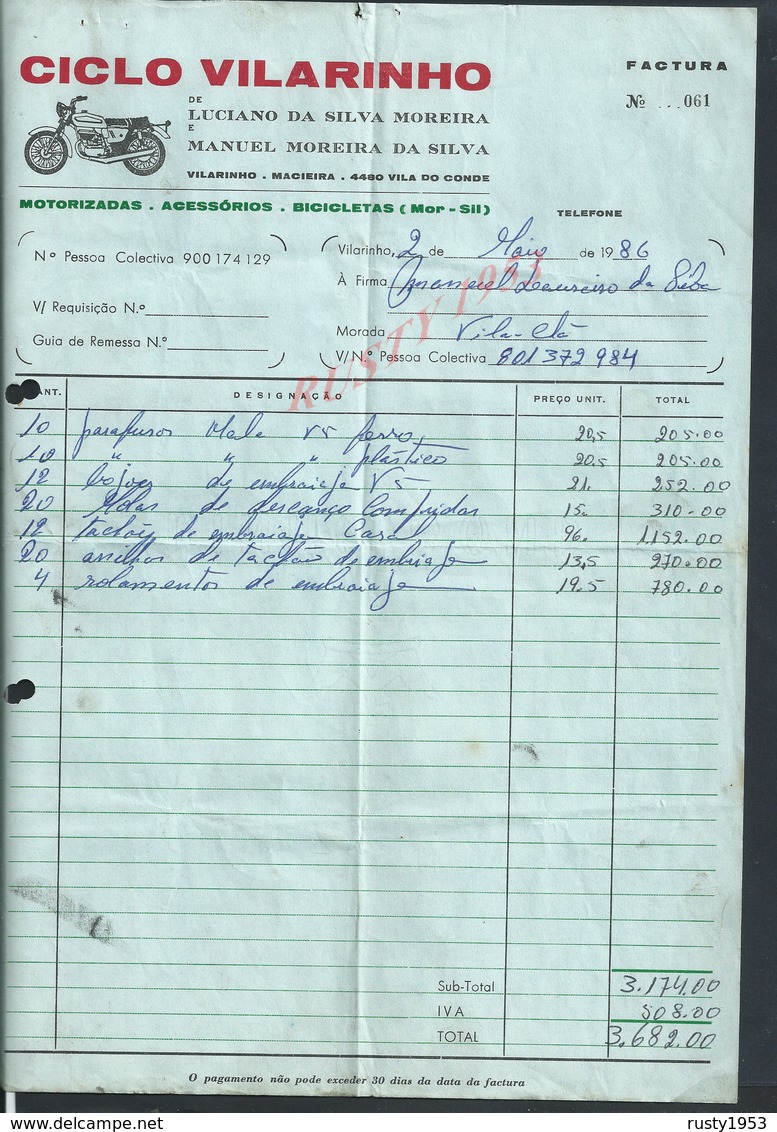 CICLO VILARINHO
FACTURA
DE
LUCIANO DA SILVA MOREIRA
E
MANUEL MOREIRA DA SILVA
Nº ...061
VILARINHO . MACIEIRA . 4480 VILA DO CONDE
MOTORIZADAS . ACESSÓRIOS . BICICLETAS ( Mor - Sil )
TELEFONE
Nº Pessoa Colectiva 900174129
V/ Requisição N.º
Guia de Remessa N.º
Vilarinho, 2 de Maio de 1986
À Firma Manuel Loureiro da Silva
Morada Vila-Chã
V/ N.º Pessoa Colectiva 801372984
RUSTY 1953
ANT. DESIGNAÇÃO PREÇO UNIT. TOTAL
10 parafusos Mola V5 ferro 20,5 205.00
10 " " " plástico 20,5 205.00
12 de embraiaje V5 21. 252.00
20 Molas de descanço Compridas 15. 310.00
12 tacções de embraiaje Casal 96. 1.152.00
20 anilhas de tacção de embriaje 13,5 270.00
4 rolamentos de embraiaje 19.5 780.00
Sub-Total 3.174.00
IVA 508.00
TOTAL 3.682.00
O pagamento não pode exceder 30 dias da data da factura
delcampe.net
rusty1953